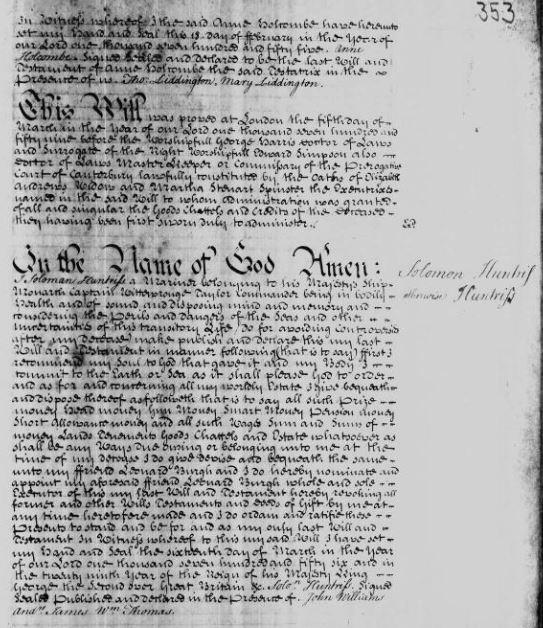 353
In Witness whereof I the said Anne Holcombe have hereunto
set my Hand and Seal this 13 day of ffebruary in the Year of
our Lord one thousand seven hundred and fifty five. Anne
Holcombe. Signed Sealed and declared to be the last Will and
Testament of Anne Holcombe the said Testatrix in the
Presence of us Tho: Liddington, Mary Liddington.
This Will was proved at London the fifth day of
March in the Year of our Lord one thousand seven hundred and
fifty nine before the Worshipfull George Harris Doctor of Laws
and Surrogate of the Right Worshipfull Edward Simpson also
Doctor of Laws Master Keeper or Commissary of the Prerogative
Court of Canterbury lawfully constituted by the Oaths of Elizabeth
Andrews Widow and Martha Stewart Spinster the Executrixes
named in the said Will to whom administration was granted
of all and singular the Goods Chattels and Credits of the deceased
they having been first sworn duly to administer.
In the Name of God Amen:
I Solomon Huntriss a Mariner belonging to his Majestys Ship
Monarch Captain Wittewronge Taylor Commander being in bodily
Health and of sound and disposing mind and memory and
considering the Perils and dangers of the Seas and other
uncertainties of this transitory Life /do for avoiding Controversies
after my decease/ make publish and declare this my last
Will and Testament in manner following (that is to say) ffirst I
recommend my Soul to God that gave it and my Body I
commit to the Earth or Sea as it shall please God to order
and as for and concerning all my worldly Estate I Give bequeath
and dispose thereof as followeth that is to say all such Prize
money Head money Smart Money Pension Money
Short Allowance money and all such Wages Sum and Sums of
money Lands Tenements Goods Chattels and Estate whatsoever as
shall be any Ways due owing or belonging unto me at the
time of my decease I do give devise and bequeath the same
unto my ffriend Leonard Burgh and I do hereby nominate and
appoint my aforesaid ffriend Leonard Burgh whole and sole
Executor of this my last Will and Testament hereby revoking all
former and other Wills Testaments and deeds of Gift by me at
any time heretofore made And I do ordain and ratifie these
Presents to stand and be for and as my only last Will and
Testament In Witness whereof to this my said Will I have set
my Hand and Seal the sixteenth day of March in the Year
of our Lord one thousand seven hundred and fifty six and in
the twenty ninth Year of the Reign of his Majesty King
George the Second over Great Britain &c. Solo.n Huntriss. Signed
Sealed Published and declared in the Presence of John Williams
James Wm Thomas.
Solomon Huntriss
otherwise Huntriss